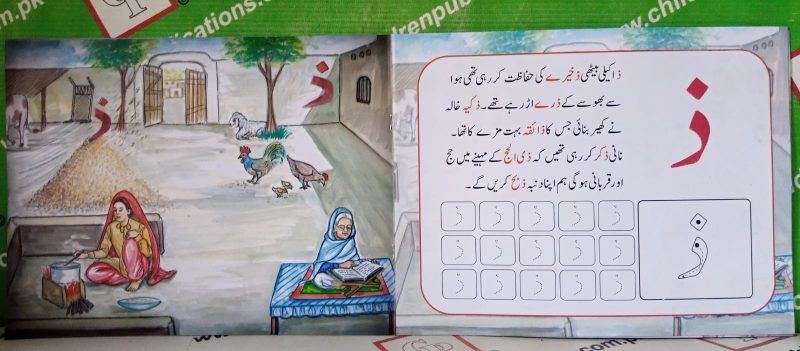 ذ
ذ
ذ اکیلی بیٹھی ذخیرے کی حفاظت کر رہی تھی ہوا
سے بھوسے کے ذرے اڑ رہے تھے۔ ذکیہ خالہ
نے کھیر بنائی جس کا ذائقہ بہت مزے کا تھا۔
نانی ذکر کر رہی تھیں کہ ذی الحج کے مہینے میں حج
اور قربانی ہوگی ہم اپنا دنبہ ذبح کریں گے۔
ذ
ذ ذ ذ ذ ذ
ذ ذ ذ ذ ذ
ذ ذ ذ ذ ذ
ذ